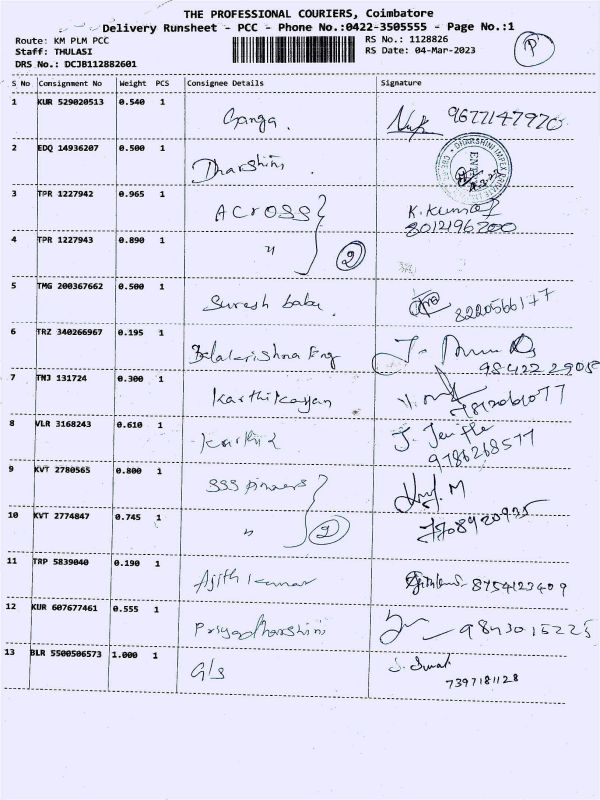 THE PROFESSIONAL COURIERS, Coimbatore
Delivery Runsheet - PCC - Phone No.:0422-3505555 - Page No.:1
Route: KM PLM PCC RS No.: 1128826
Staff: THULASI RS Date: 04-Mar-2023
DRS No.: DCJB112882601
P
S No Consignment No Weight PCS Consignee Details Signature
1 KUR 529020513 0.540 1 Ganga. 9677147970
2 EDQ 14936207 0.500 1 Dharshini.
3 TPR 1227942 0.965 1 Across K. Kumar
8012196200
4 TPR 1227943 0.890 1 " 2
5 TMG 200367662 0.500 1 Suresh babu. 8220566177
6 TRZ 340266967 0.195 1 Balakrishna Eng
98422 29058
7 TNJ 131724 0.300 1 Karthikayan
8 VLR 3168243 0.610 1 Karthik J.
9786268577
9 KVT 2780565 0.800 1 SSS M
10 KVT 2774847 0.745 1 " 2 7708920935
11 TRP 5839040 0.190 1 Ajith kumar 8754122409
12 KUR 607677461 0.555 1 Priyadharshini 9843015225
13 BLR 5500506573 1.000 1 G/s
7397181128